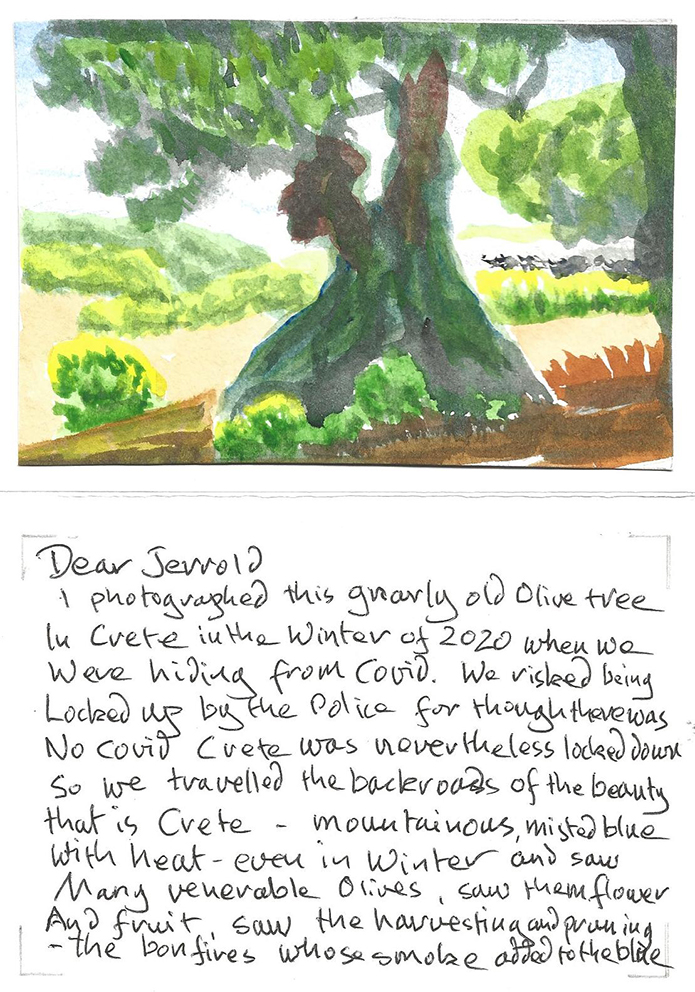 Dear Jerrold
I photographed this gnarly old Olive tree
In Crete in the Winter of 2020 when we
Were hiding from Covid. We risked being
Locked up by the Police for though there was
No covid Crete was nevertheless locked down
So we travelled the backroads of the beauty
that is Crete - mountainous, misted blue
With heat - even in Winter and saw
Many venerable Olives, saw them flower
And fruit, saw the harvesting and pruning
- the bonfires whose smoke added to the blue